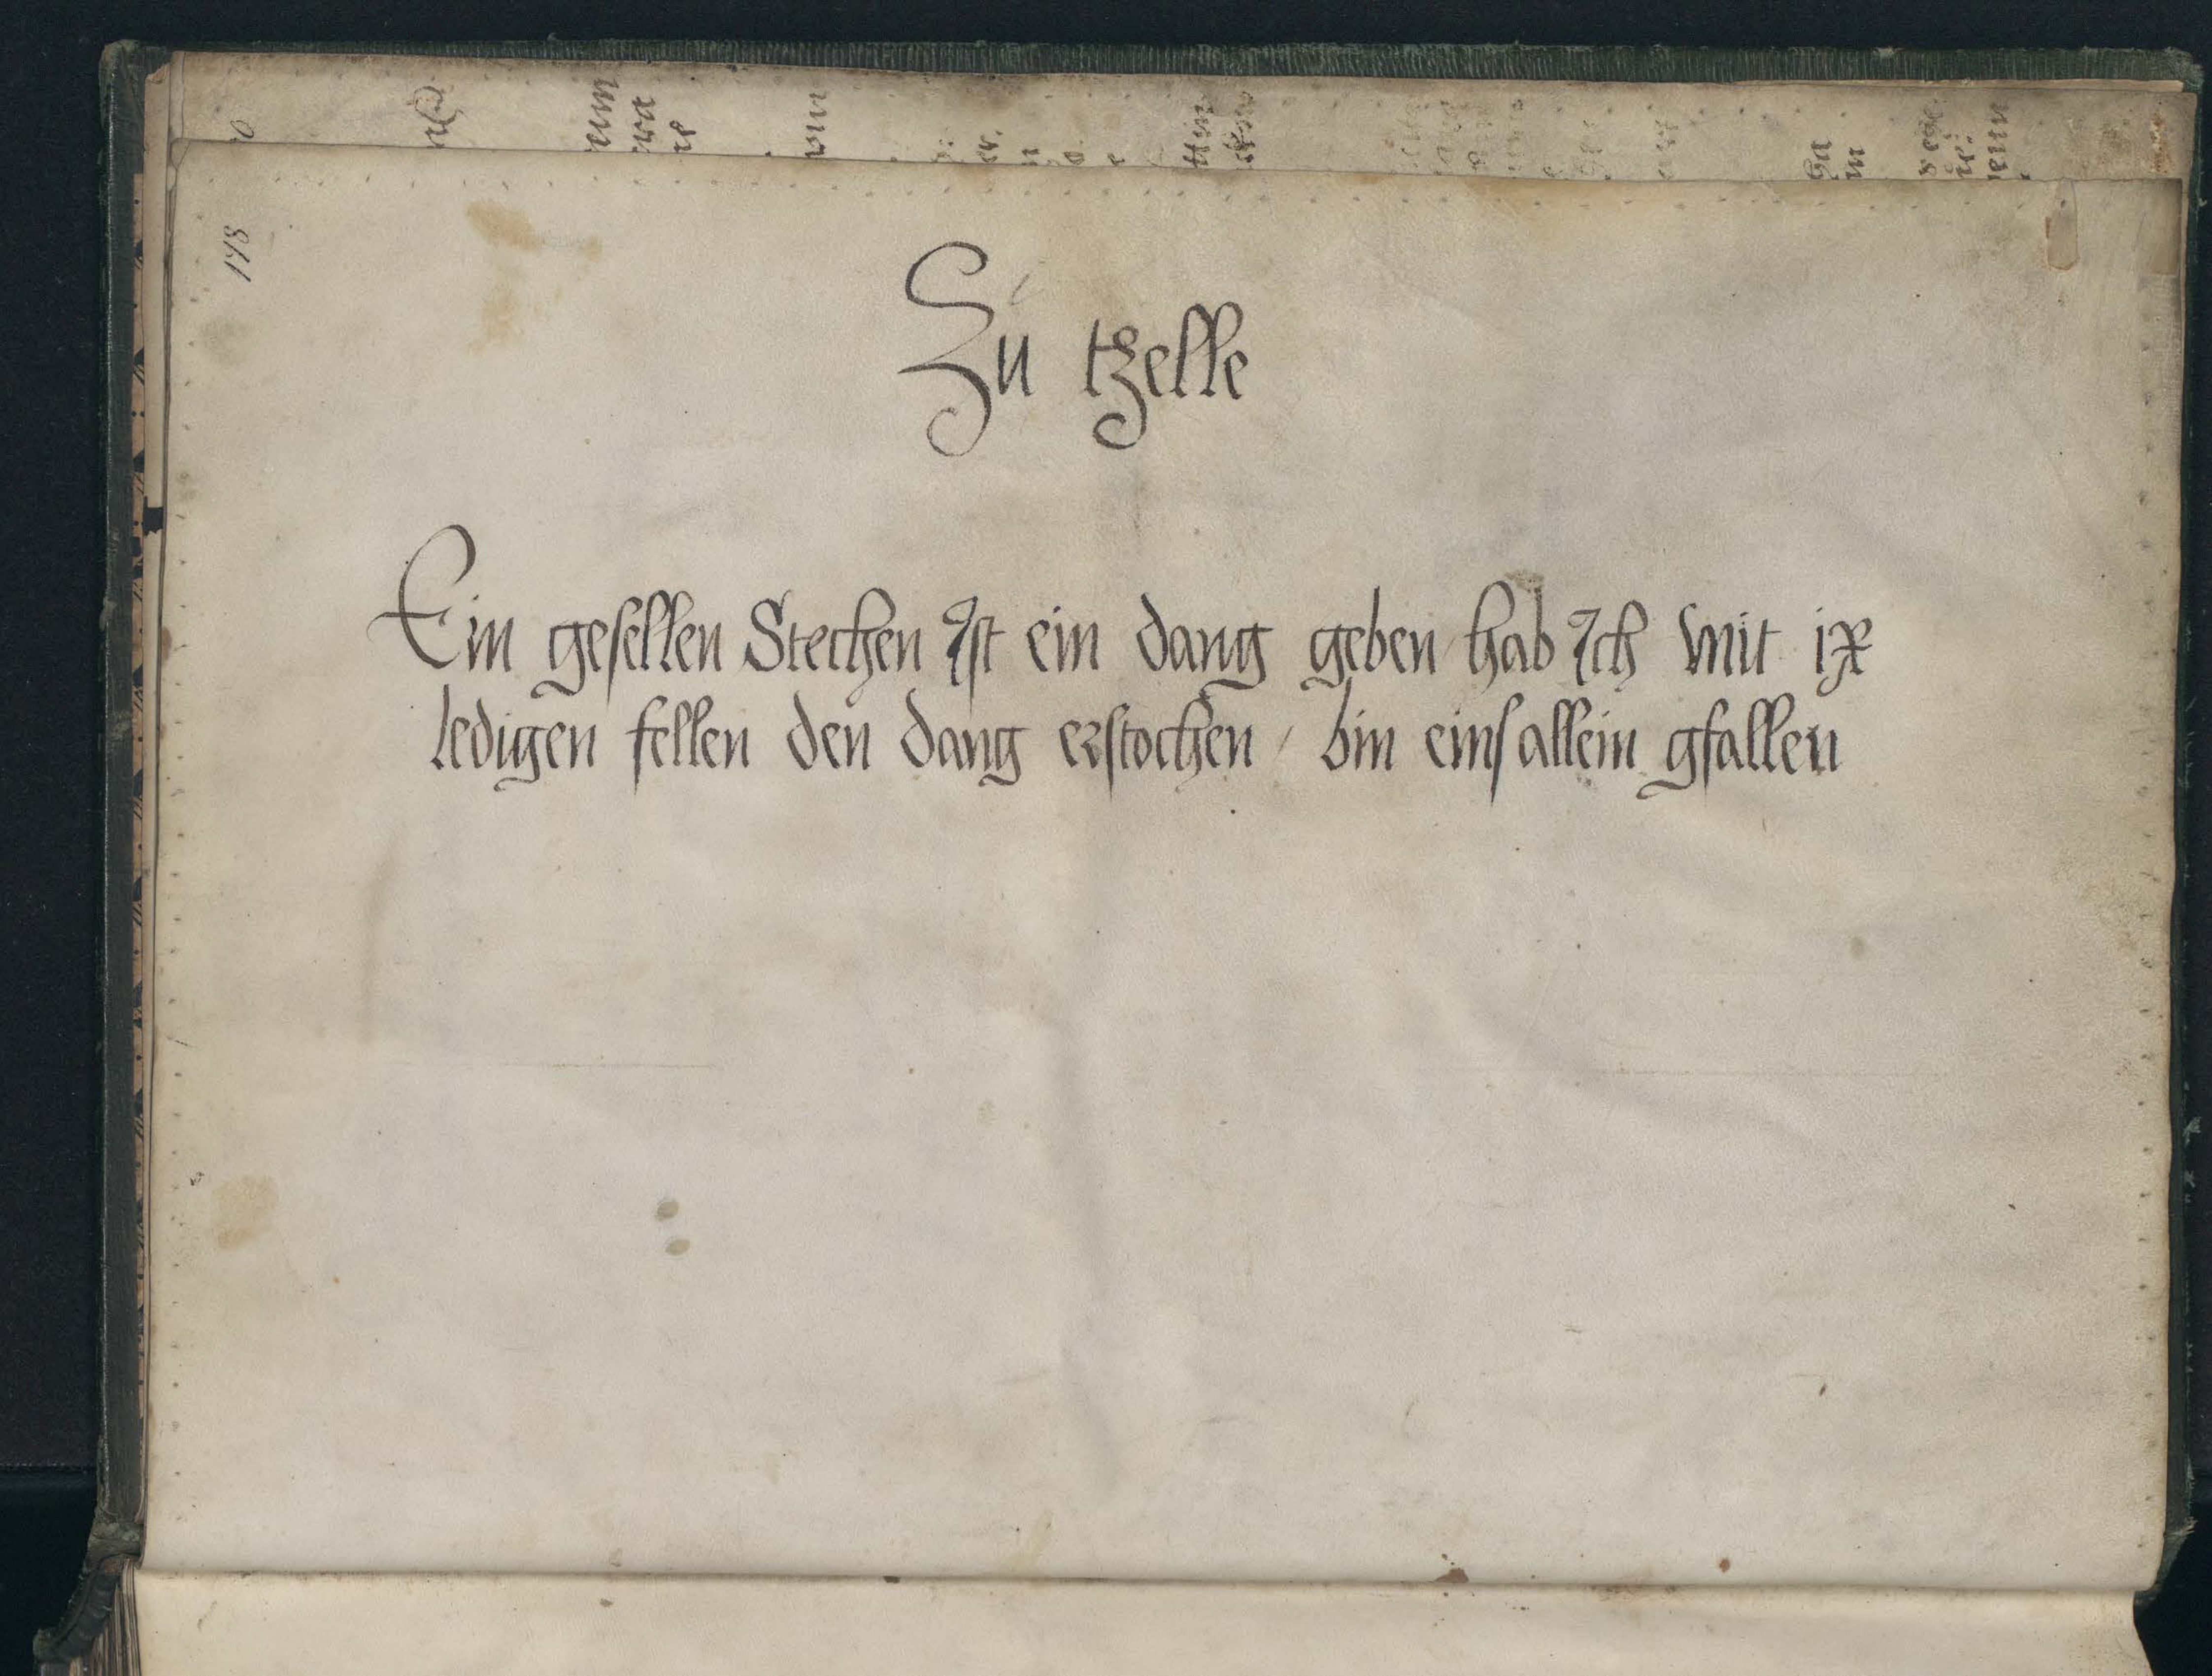 178
Zu tzelle
Ein gesellen Stechen Ist ein dang geben / hab Ich mit ix
ledigen fellen den dang erstochen / bin eins allein gfallen